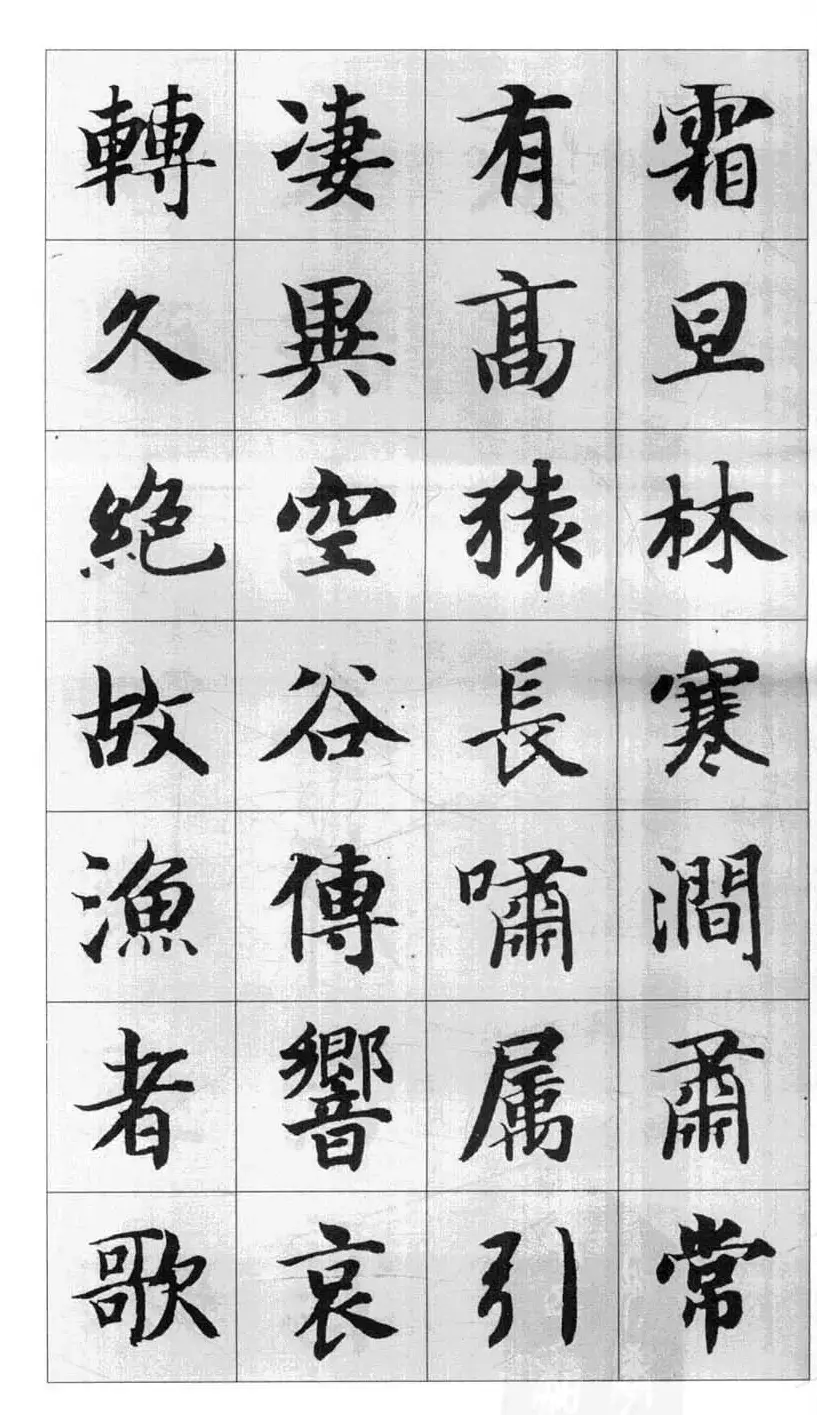 霜旦林寒澗肅常
有高猿長嘯属引
淒異空谷傳響哀
轉久絕故漁者歌